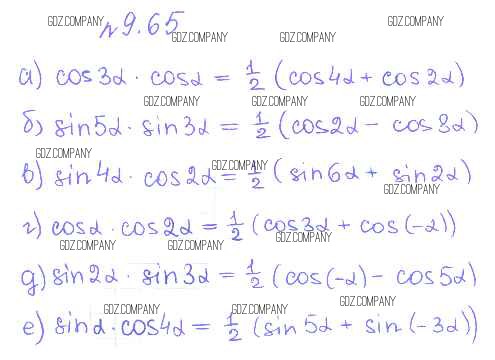 №9.65
GDZ.COMPANY GDZ.COMPANY GDZ.COMPANY
GDZ.COMPANY GDZ.COMPANY
а) cos3α · cosα = 1/2 (cos4α + cos2α)
GDZ.COMPANY GDZ.COMPANY GDZ.COMPANY
б) sin5α · sin3α = 1/2 (cos2α - cos3α)
GDZ.COMPANY GDZ.COMPANY
в) sin4α · cos2α = 1/2 (sin6α + sin2α)
GDZ.COMPANY
г) cosα · cos2α = 1/2 (cos3α + cos(-α))
GDZ.COMPANY GDZ.COMPANY GDZ.COMPANY
д) sin2α · sin3α = 1/2 (cos(-α) - cos5α)
GDZ.COMPANY GDZ.COMPANY GDZ.COMPANY
е) sinα · cos4α = 1/2 (sin5α + sin(-3α))